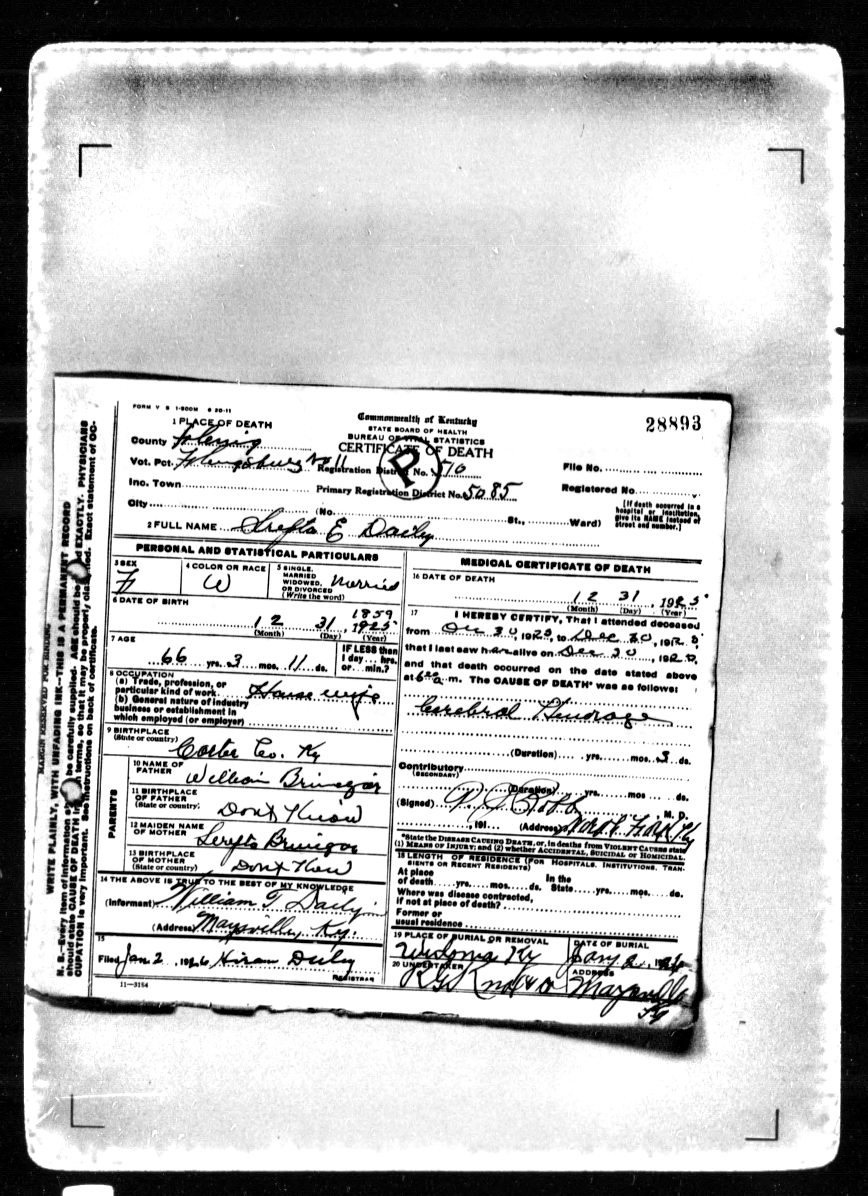 FORM V S 1-500M 6 20-11
Commonwealth of Kentucky
STATE BOARD OF HEALTH
BUREAU OF VITAL STATISTICS
CERTIFICATE OF DEATH
28893
P
1 PLACE OF DEATH
County Fleming
Vot. Pct. Flemingsburg No 11 Registration District No. 510 File No.
Inc. Town Primary Registration District No. 5085 Registered No
City (No. St., Ward)
[If death occurred in a hospital or institution, give its NAME instead of street and number.]
2 FULL NAME E Daily
PERSONAL AND STATISTICAL PARTICULARS
3 SEX F
4 COLOR OR RACE W
5 SINGLE, MARRIED WIDOWED, OR DIVORCED (Write the word) Married
6 DATE OF BIRTH
12 31, 1859 1925
(Month) (Day) (Year)
7 AGE
66 yrs. 3 mos. 11 ds.
IF LESS than 1 day... hrs. or... min.?
8 OCCUPATION
(a) Trade, profession, or particular kind of work House wife
(b) General nature of industry business or establishment in which employed (or employer)
9 BIRTHPLACE (State or country) Carter Co. Ky
PARENTS
10 NAME OF FATHER William Brinegar
11 BIRTHPLACE OF FATHER (State or country) Dont Know
12 MAIDEN NAME OF MOTHER Brinegar
13 BIRTHPLACE OF MOTHER (State or country) Dont Know
14 THE ABOVE IS TRUE TO THE BEST OF MY KNOWLEDGE
(Informant) William T. Daily
(Address) Maysville, Ky.
15
Filed Jan 2 1926 Hiram Duly
REGISTRAR
11-3184
MEDICAL CERTIFICATE OF DEATH
16 DATE OF DEATH
12 31, 1925
(Month) (Day) (Year)
17 I HEREBY CERTIFY, That I attended deceased
from 30, 1925, to Dec 30, 1925,
that I last saw her alive on Dec 30, 192
and that death occurred on the date stated above
at 6 a. m. The CAUSE OF DEATH* was as follows:
Cerebral
(Duration) yrs. mos. 3 ds.
Contributory (SECONDARY)
(Duration) yrs. mos. ds.
(Signed) Robb, M. D.
, 191 (Address) North Fork Ky
*State the DISEASE CAUSING DEATH, or, in deaths from VIOLENT CAUSES state (1) MEANS OF INJURY; and (2) whether ACCIDENTAL, SUICIDAL or HOMICIDAL.
18 LENGTH OF RESIDENCE (FOR HOSPITALS, INSTITUTIONS, TRANSIENTS OR RECENT RESIDENTS)
At place of death yrs. mos. ds. In the State yrs. mos. ds.
Where was disease contracted, if not at place of death?
Former or usual residence
19 PLACE OF BURIAL OR REMOVAL Ky
DATE OF BURIAL Jany 2, 1926
20 UNDERTAKER
ADDRESS Maysville Ky
MARGIN RESERVED FOR BINDING
WRITE PLAINLY, WITH UNFADING INK—THIS IS A PERMANENT RECORD
N. B.—Every item of information should be carefully supplied. AGE should be stated EXACTLY. PHYSICIANS
should state CAUSE OF DEATH in plain terms, so that it may be properly classified. Exact statement of OC-
CUPATION is very important. See instructions on back of certificate.